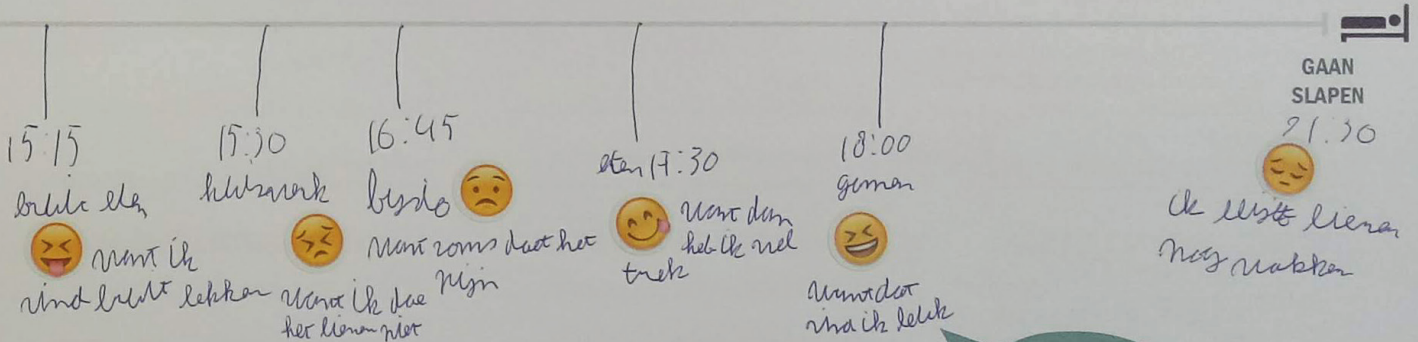 GAAN
SLAPEN
15:15
fruit eten
want ik
vind fruit lekker
15:30
huiswerk
want ik doe
het liever niet
16:45
fysio
want soms doet het
pijn
eten 17:30
want dan
heb ik wel
trek
18:00
gamen
want dat
vind ik leuk
21:30
ik liever
nog wakker